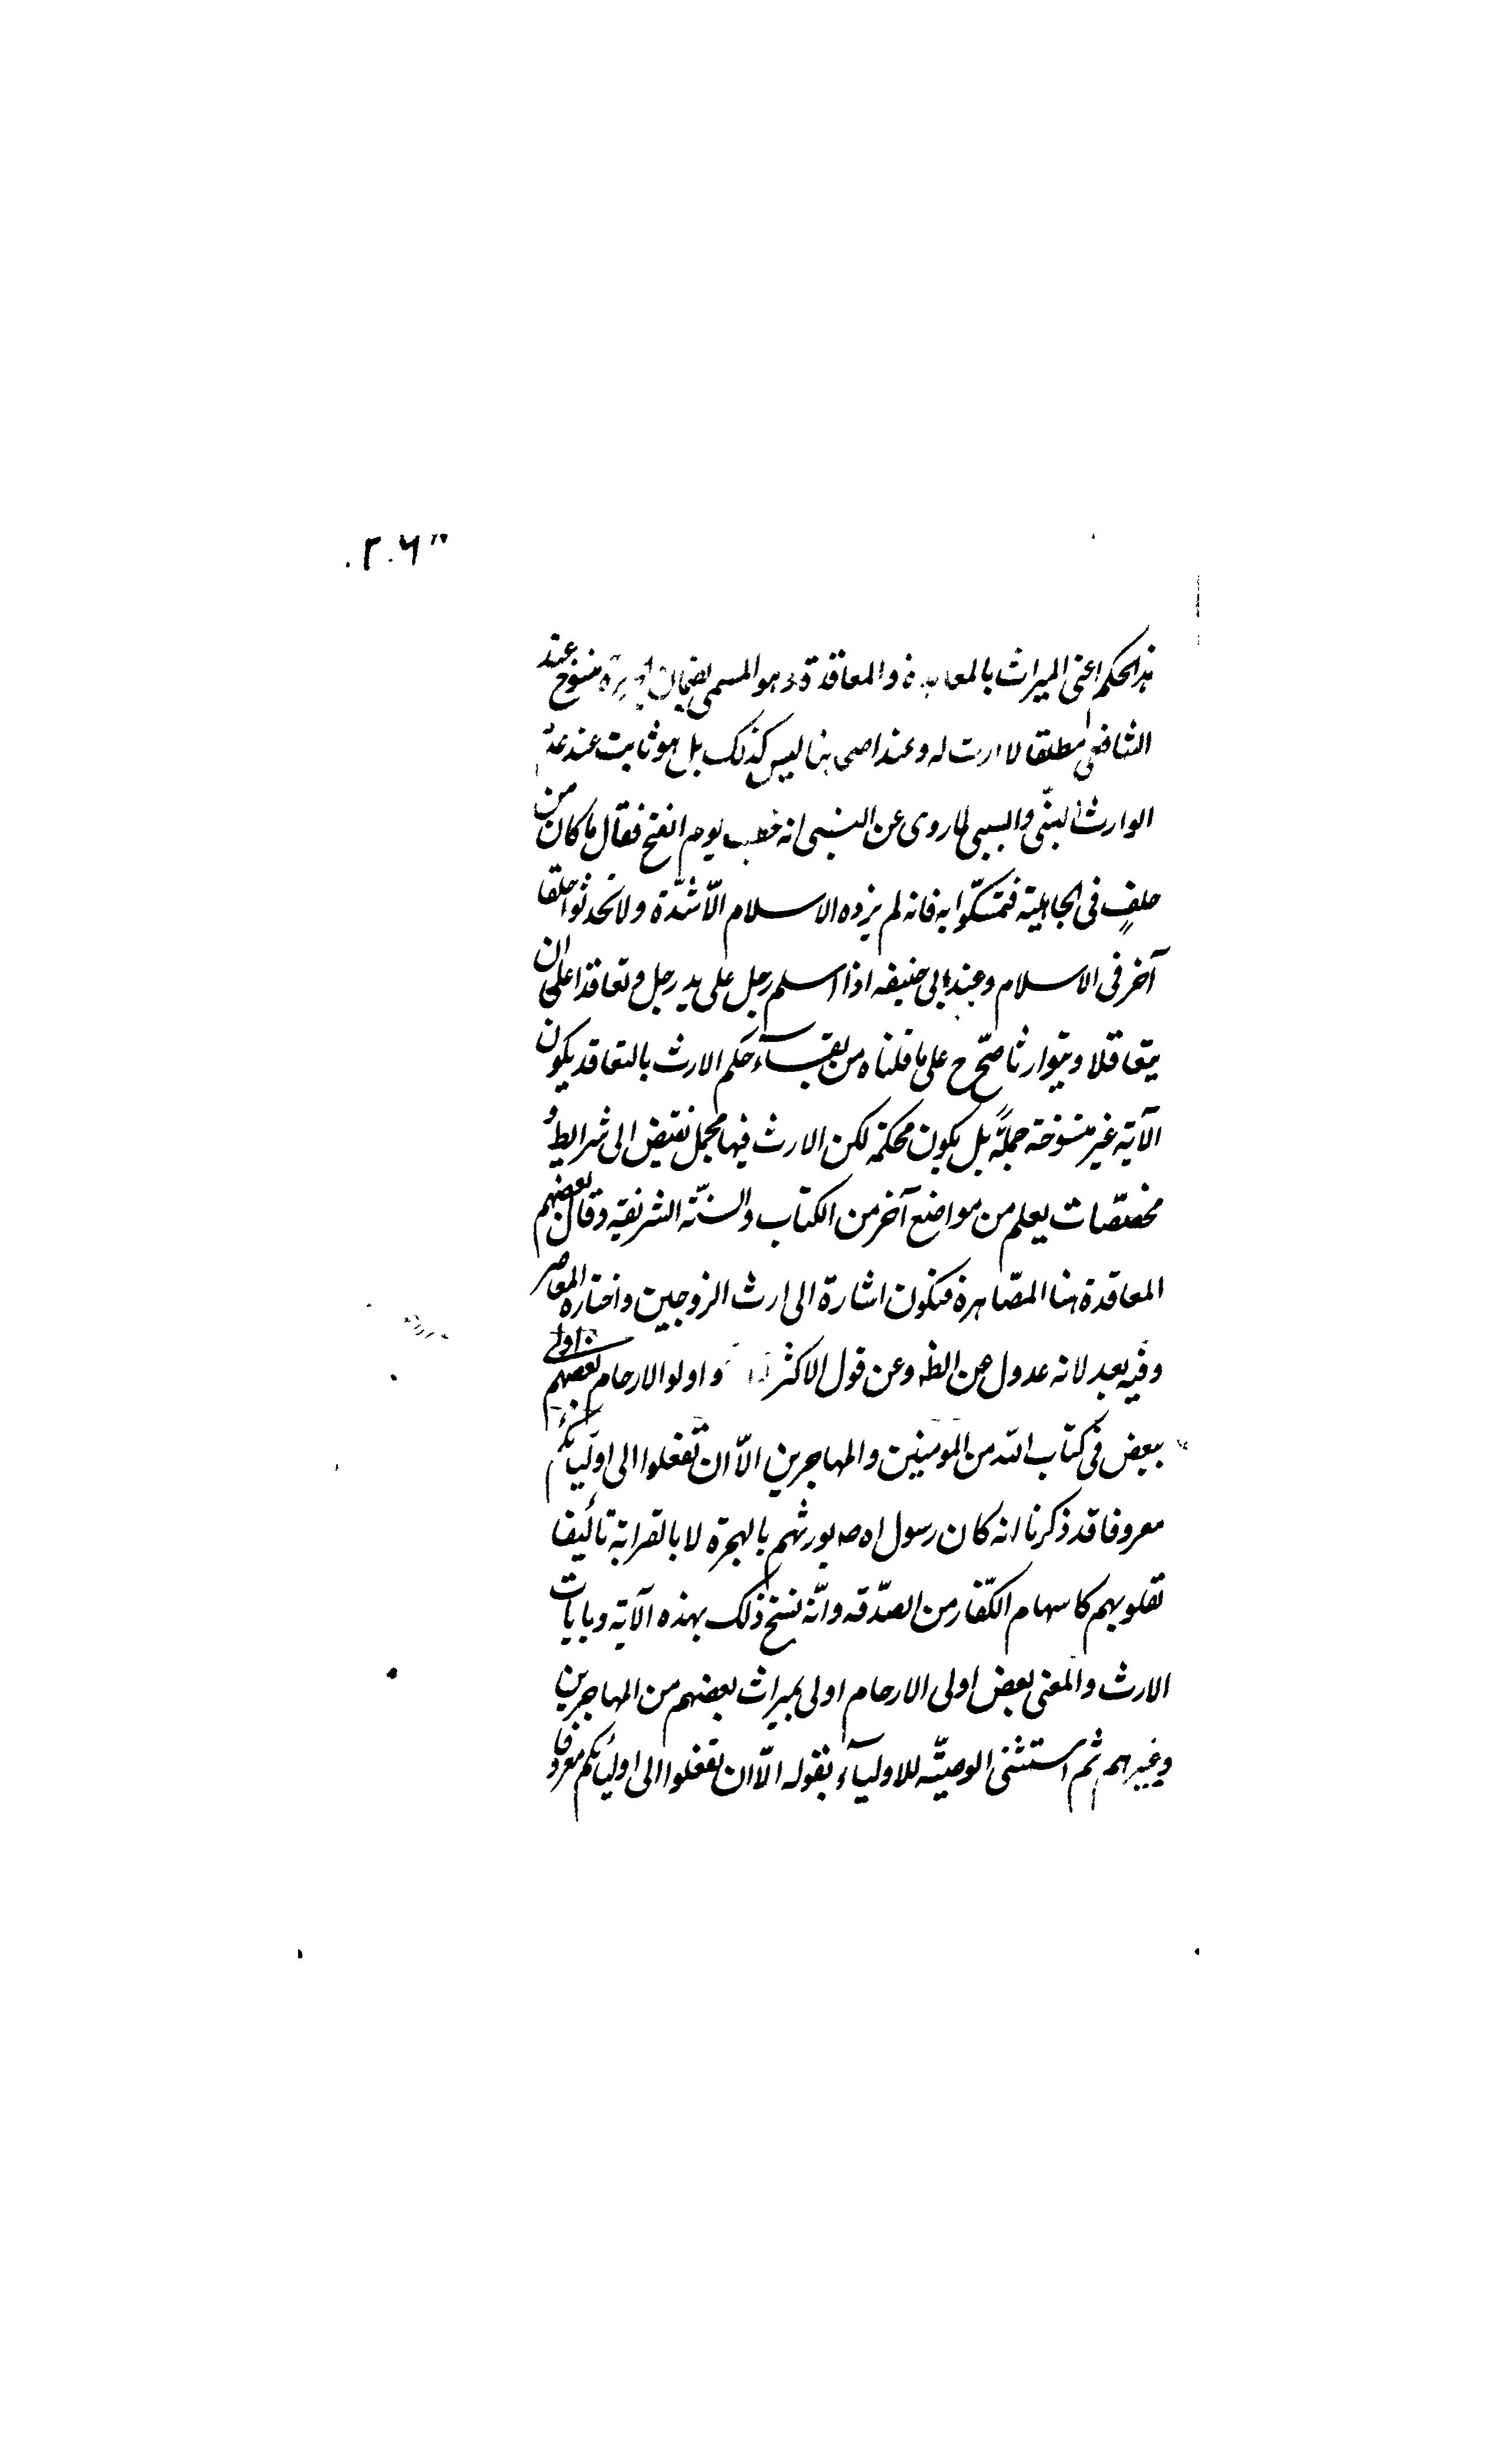 ٢٠٦
هذا الحكم اعنى الميراث بالمعاهدة والمعاقدة وهو المسمى بضمان الجريرة منسوخ عند
الشافعى مطلقا لا ارث له وعند اصحابنا ليس كذلك بل هو ثابت عند عدم
الوارث النسبى والسببى لما روى عن النبى انه خطب يوم الفتح فقال ما كان من
حلفٍ فى الجاهلية فتمسّكوا به فانه لم يزده الاسلام الّا شدّة ولا تحدثوا حلفا
آخر فى الاسلام وعند ابى حنيفه اذا اسلم رجل على يد رجل وتعاقدا على ان
يتعاقلا ويتوارثا صحّ ح على ما قلناه من بقآء حكم الارث بالتعاقد يكون
الآية غير منسوخة جملةً بل يكون محكمة لكن الارث فيها مجمل نفتقر الى شرايط و
مخصّصات يعلم من مواضع آخر من الكتاب والسنّة الشريفة وقال بعضهم
المعاقدة هنا المصّاهرة فتكون اشارة الى ارث الزوجين واختاره المعاصر
وفيه بعد لانه عدول عن الظ وعن قول الاكثر واولوا الارحام بعضهم اولى
ببعض فى كتاب الله من المومنين والمهاجرين الّا ان تفعلوا الى اوليائكم
معروفا قد ذكرنا انه كان رسول اه ص يورثهم بالهجرة لا بالقرابة تأليفا
لقلوبهم كاسهام الكفّار من الصدّقه وانّه نسخ ذلك بهذه الآية وبايات
الارث والمعنى بعض اولى الارحام اولى بميراث بعضهم من المهاجرين
وغيرهم ثم استثنى الوصيّه للاوليآء بقوله الّا ان تفعلوا الى اوليائكم معروفا